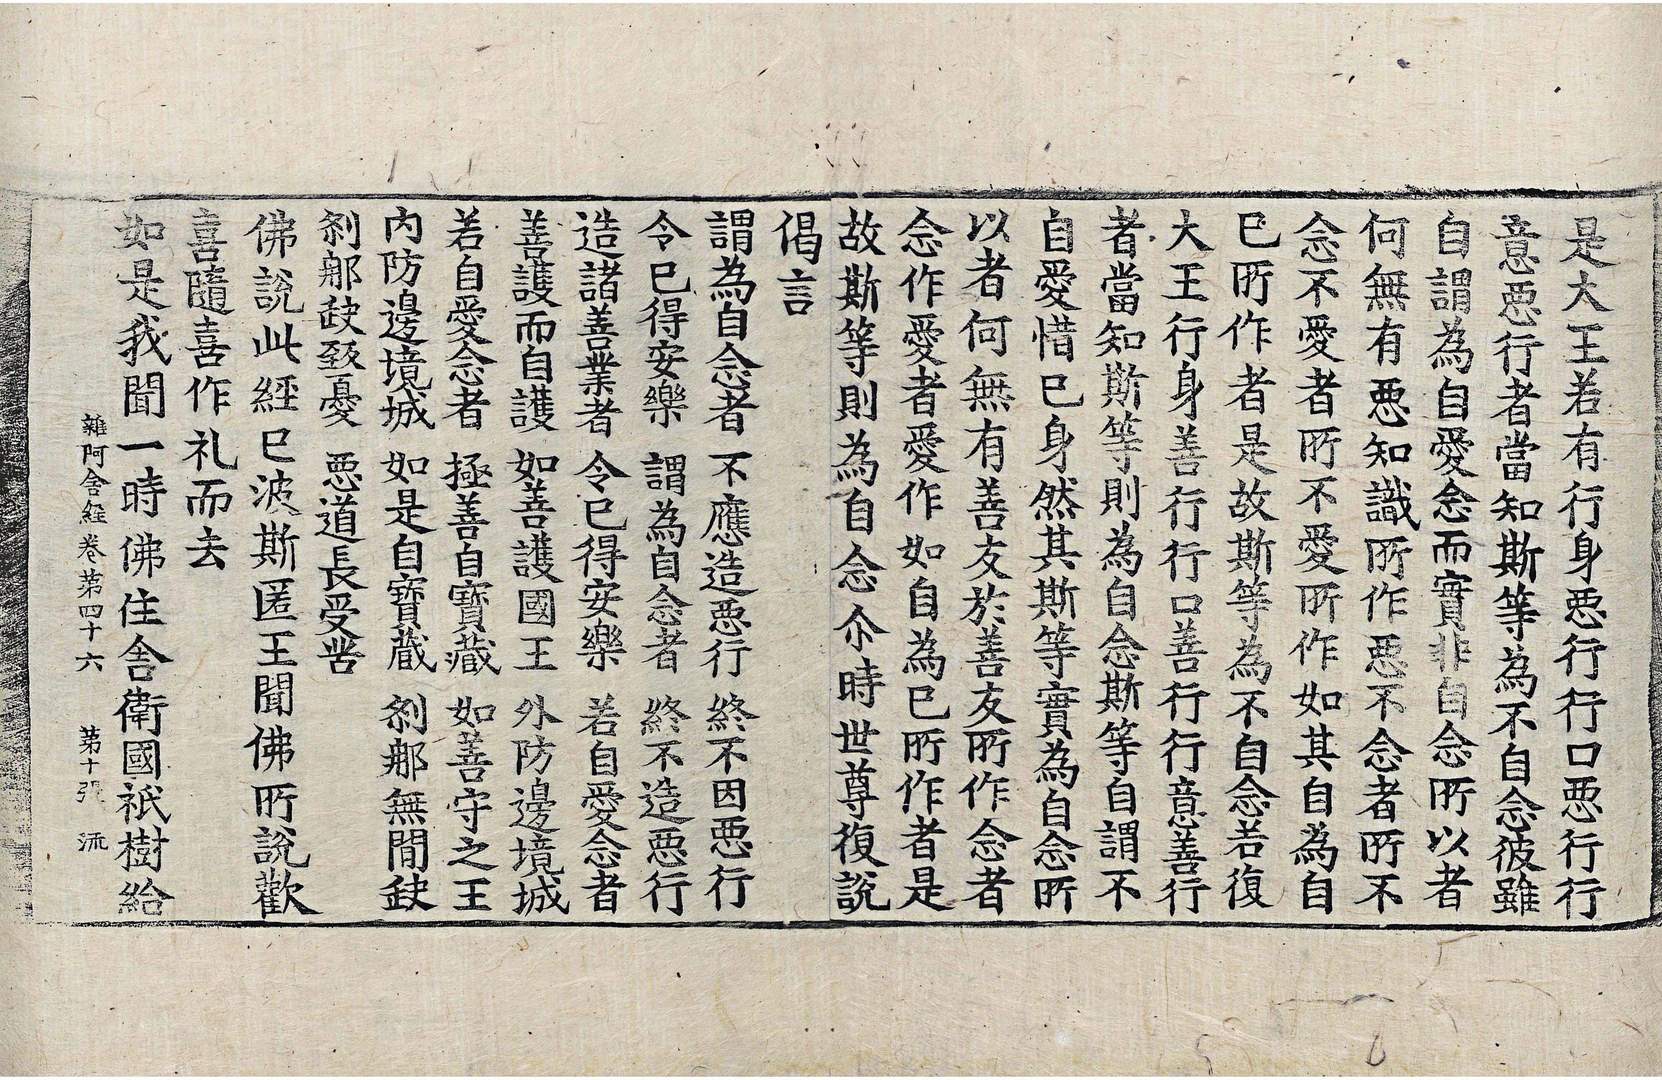 是大王若有行身惡行行口惡行行
意惡行者當知斯等爲不自念彼雖
自謂爲自愛念而實非自念所以者
何無有惡知識所作惡不念者所不
念不愛者所不愛所作如其自爲自
已所作者是故斯等爲不自念若復
大王行身善行行口善行行意善行
者當知斯等則爲自念斯等自謂不
自愛惜已身然其斯等實爲自念所
以者何無有善友於善友所作念者
念作愛者愛作如自爲已所作者是
故斯等則爲自念尒時世尊復說
偈言
謂爲自念者 不應造惡行 終不因惡行
令已得安樂 謂爲自念者 終不造惡行
造諸善業者 令已得安樂 若自愛念者
善護而自護 如善護國王 外防邊境城
若自愛念者 極善自寶藏 如善守之王
內防邊境城 如是自寶藏 剎那無閒缺
剎那缺致憂 惡道長受苦
佛說此經已波斯匿王聞佛所說歡
喜隨喜作礼而去
如是我聞一時佛住舍衛國祇樹給
雜阿含經卷第四十六 第十張 流